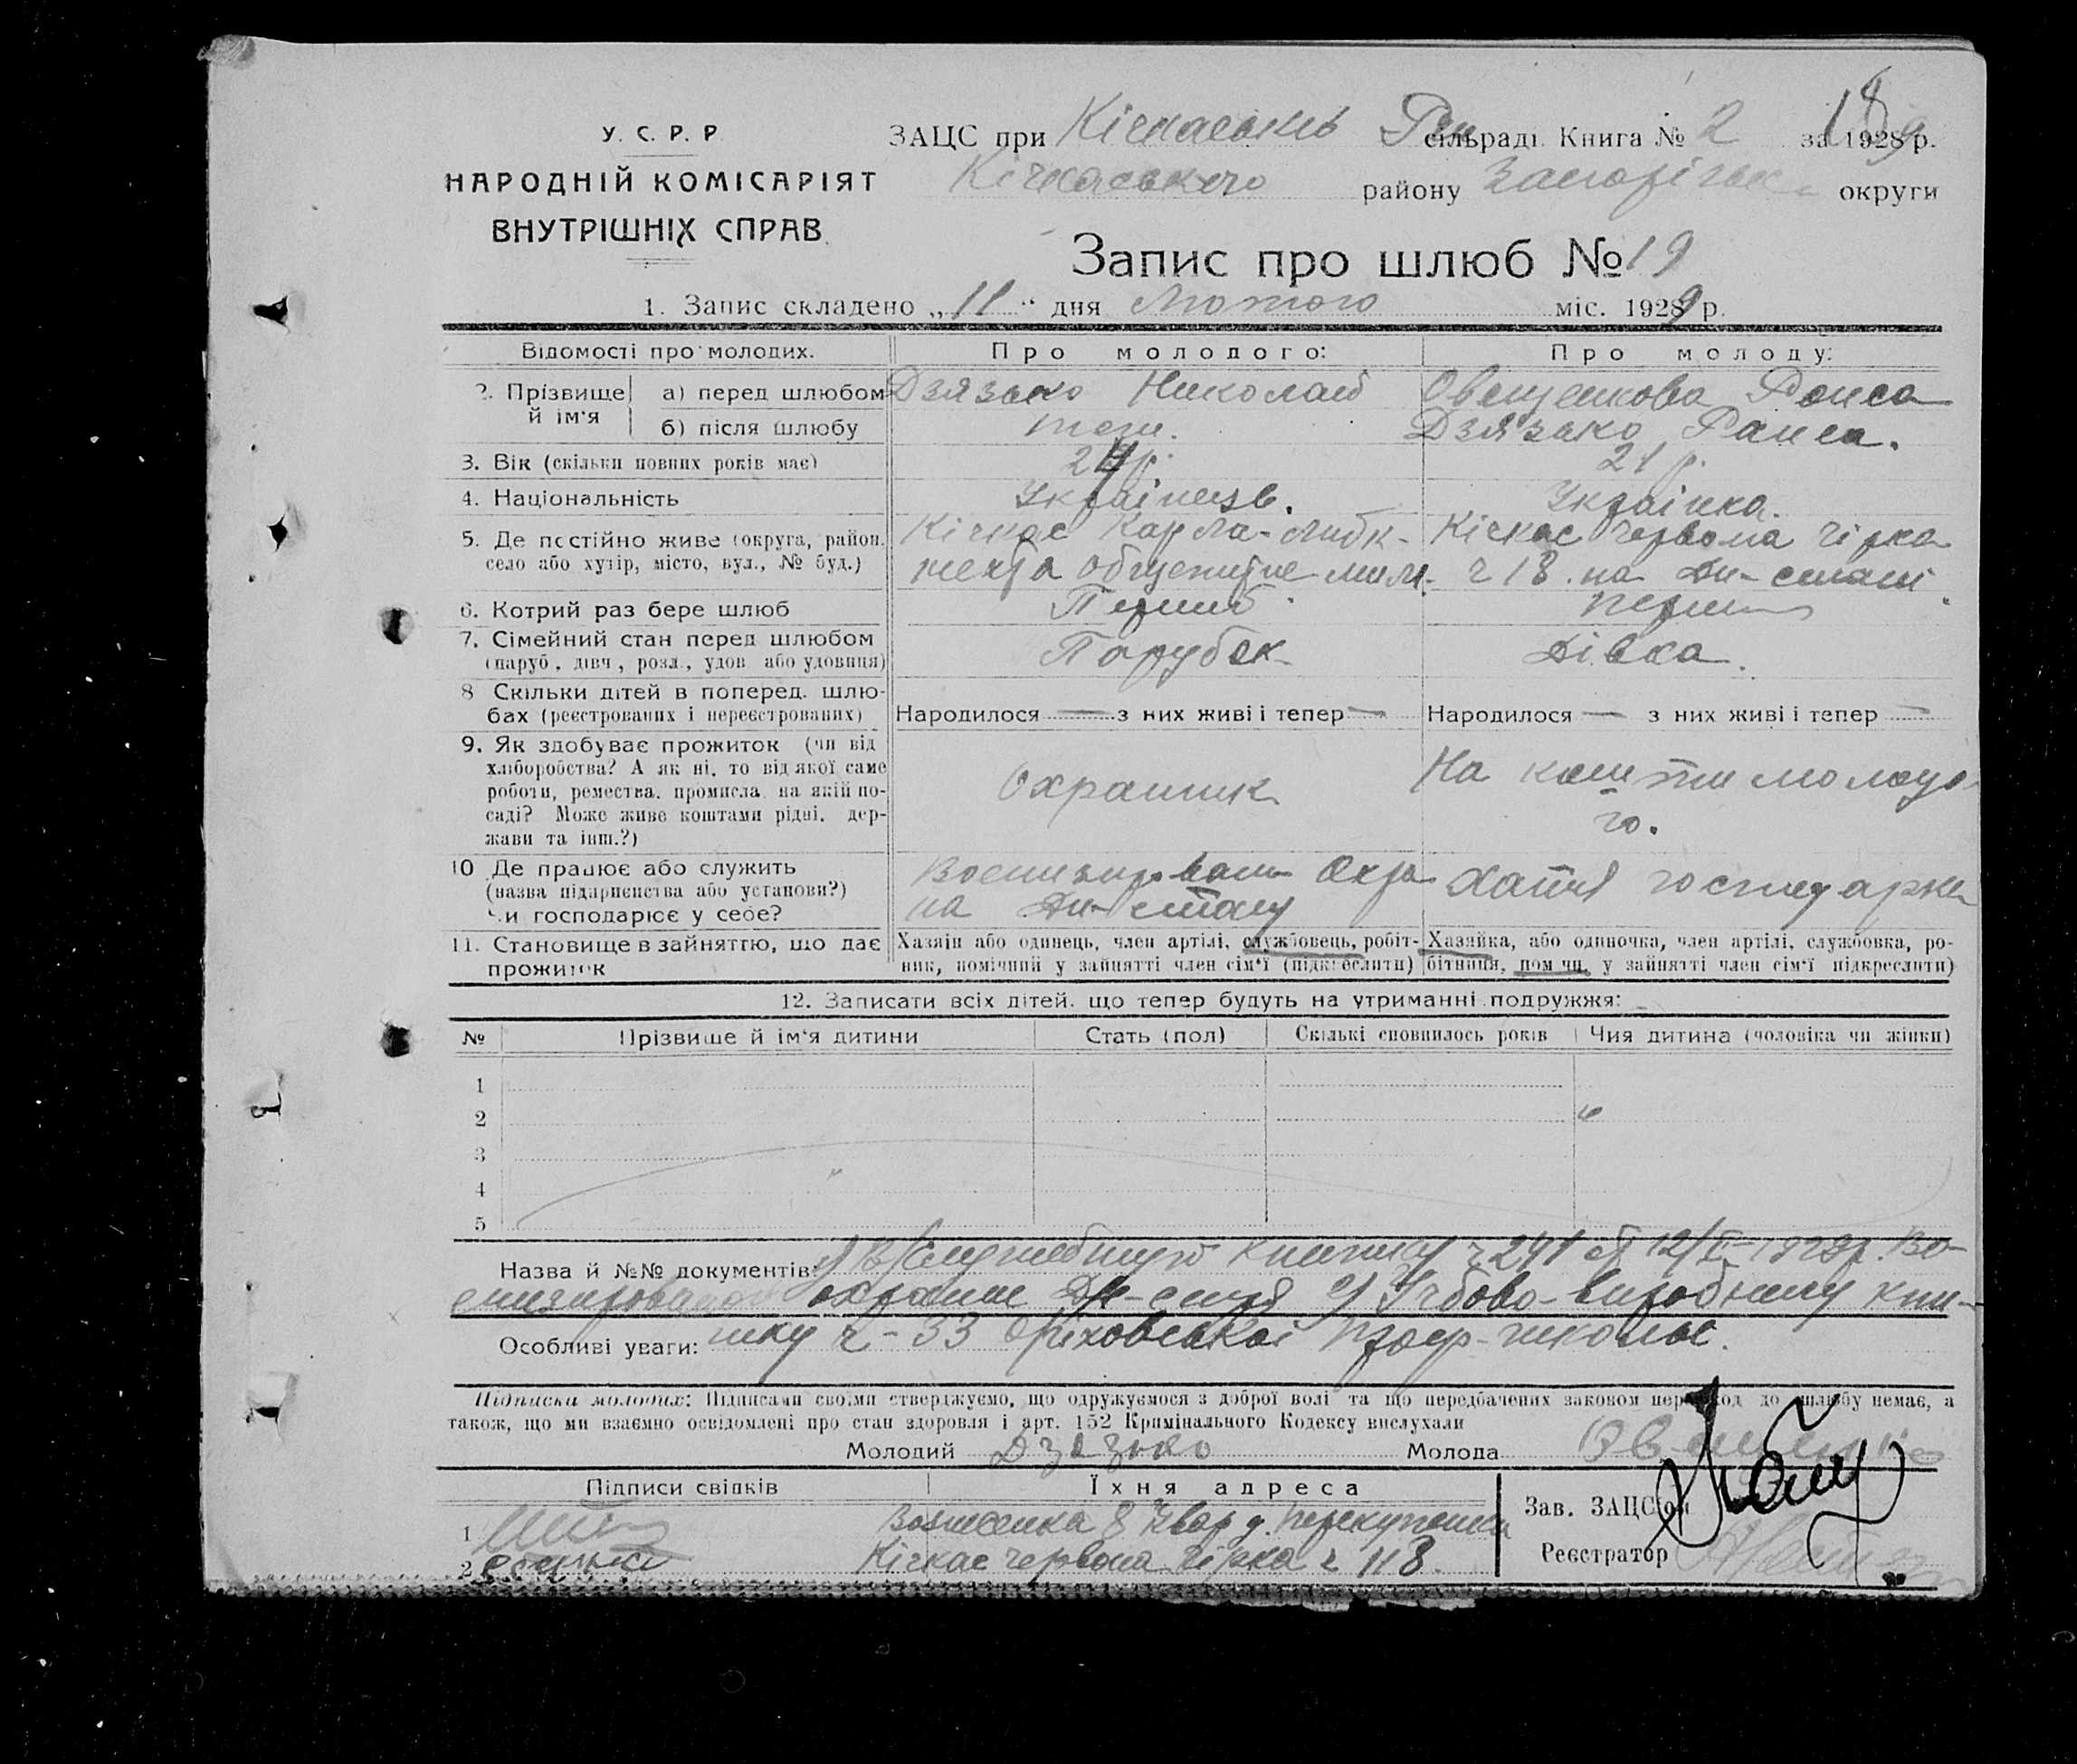 18
У. С. Р. Р
НАРОДНІЙ КОМІСАРІЯТ
ВНУТРІШНІХ СПРАВ
ЗАЦС при Кічкаськ сільраді. Книга № 2 за 1929 р.
Кічкаського району Запоріжськ округи
Запис про шлюб № 19
1. Запис складено „11“ дня Лютого міс. 1929 р.
Відомості про молодих. Про молодого: Про молоду:
2. Прізвище й ім'я а) перед шлюбом Дзязько Николай Овещенкова Раиса
б) після шлюбу тоже. Дзязько Раиса.
3. Вік (скільки повних років має) 21 р.
4. Національність Українець. Українка.
5. Де постійно живе (округа, район, село або хутір, місто, вул., № буд.)
Кічкас Карла-Либк-
нехта общежитие
Кічкас Червона гірка
6. Котрий раз бере шлюб Перший перший
7. Сімейний стан перед шлюбом Парубок Дівка.
(паруб., дівч., розл., удов. або удовиця)
8 Скільки дітей в поперед. шлю-
бах (реєстрованих і нереєстрованих) Народилося — з них живі і тепер — Народилося — з них живі і тепер —
9. Як здобуває прожиток (чи від
хліборобства? А як ні, то від якої саме
роботи, ремества, промисла, на якій по-
саді? Може живе коштами рідні, дер-
жави та інш.?)
Охранник
На кошти молодо-
го.
10 Де працює або служить
(назва підприємства або установи?)
Чи господарює у себе?
Охра
на
Хатня господарка
11. Становище в зайняттю, що дає
прожиток
Хазяїн або одинець, член артілі, службовець, робіт-
ник, помічний у зайнятті член сім'ї (підкреслити)
Хазяйка, або одиночка, член артілі, службовка, ро-
бітниця, пом чн. у зайнятті член сім'ї підкреслити)
12. Записати всіх дітей, що тепер будуть на утриманні подружжя:
№ Прізвище й ім'я дитини Стать (пол) Скількі сповнилось років Чия дитина (чоловіка чи жінки)
1
2
3
4
5
Назва й №№ документів: Служебную книжку
охрани 2) Учбово-виробничу кни-
Особливі уваги: жку ч-33 Оріховської проф-школы.
Підписки молодих: Підписами своїми стверджуємо, що одружуємося з доброї волі та що передбачених законом перешкод до шлюбу немає, а
також, що ми взаємно освідомлені про стан здоровля і арт. 152 Кримінального Кодексу вислухали
Молодий Дзязько Молода
Підписи свідків Їхня адреса
1 Вознесенка 8
2 Кічкас червона гірка ч 118.
Зав. ЗАЦС'ом
Реєстратор